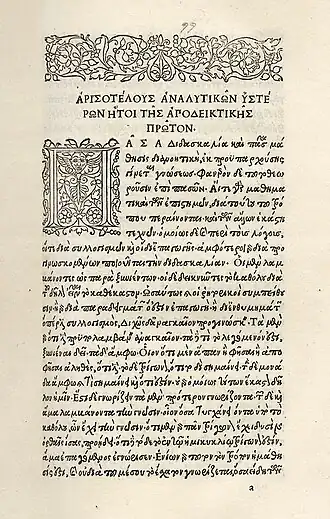 99
ΑΡΙΣΤΟΤΕΛΟΥΣ ΑΝΑΛΥΤΙΚΩΝ ΥΣΤΕ
ΡΩΝ ΗΤΟΙ ΤΗΣ ΑΠΟΔΕΙΚΤΙΚΗΣ
ΠΡΩΤΟΝ.
ΠΑΣΑ διδασκαλία καὶ πᾶσα μά
θησις διανοητικὴ, ἐκ προϋπαρχούσης
γίνεται γνώσεως. Φανερὸν δὲ τοῦτο θεω
ροῦσιν ἐπὶ πασῶν. Αἵ τε γὰρ μαθημα
τικαὶ τῶν ἐπιστημῶν, διὰ τούτου τοῦ τρό
που περαίνονται. καὶ τῶν ἄλλων ἑκάστη
τεχνῶν. ὁμοίως δὲ καὶ περὶ τοὺς λόγους,
οἵ τε διὰ συλλογισμῶν καὶ οἱ δι' ἐπαγωγῆς. ἀμφότεροι γὰρ διὰ προ
γινωσκομένων ποιοῦνται τὴν διδασκαλίαν. Οἱ μὲν λαμ
βάνοντες ὡς παρὰ ξυνιέντων. οἱ δὲ δεικνύντες τὸ καθόλου διὰ
τοῦ δῆλον εἶναι τὸ καθ' ἕκαστον. Ὡσαύτως καὶ οἱ ῥητορικοὶ συμπείθου
σιν. ἢ γὰρ διὰ παραδειγμάτων ὅ ἐστιν ἐπαγωγὴ. ἢ δι' ἐνθυμημάτων
ὅπερ ἐστὶ συλλογισμός. Διχῶς δὲ ἀναγκαῖον προγινώσκειν. Τὰ μὲν
γὰρ ὅτι ἔστι προϋπολαμβάνειν ἀναγκαῖον. τὰ δὲ τί τὸ λεγόμενόν ἐστι
ξυνιέναι δεῖ. τὰ δ' ἄμφω. Οἷον ὅτι μὲν ἅπαν ἢ φῆσαι ἢ ἀπο
φῆσαι ἀληθὲς, ὅτι ἔστι. τὸ δὲ τρίγωνον, ὅτι τοδὶ σημαίνει. τὴν δὲ μονά
δα ἄμφω. καὶ τί σημαίνει καὶ ὅτι ἔστιν. οὐ γὰρ ὁμοίως τούτων ἕκαστον δῆ
λον ἡμῖν. Ἔστι δὲ γνωρίζειν τὰ μὲν πρότερον γνωρίζοντα. τῶν δὲ καὶ
ἅμα λαμβάνοντα τὴν γνῶσιν. οἷον ὅσα τυγχάνει ὄντα ὑπὸ τὸ
καθόλου ὧν ἔχει τὴν γνῶσιν. ὅτι μὲν γὰρ πᾶν τρίγωνον ἔχει δυσὶν
ὀρθαῖς ἴσας, προῄδει. ὅτι δὲ τόδε τὸ ἐν τῷ ἡμικυκλίῳ τρίγωνόν ἐστιν,
ἅμα ἐπαγόμενος ἐγνώρισεν. Ἐνίων γὰρ τοῦτον τὸν τρόπον ἡ μάθη
σίς ἐστι, καὶ οὐ διὰ τοῦ μέσου τὸ ἔσχατον γνωρίζεται. ὅσα ἤδη τῶν
a